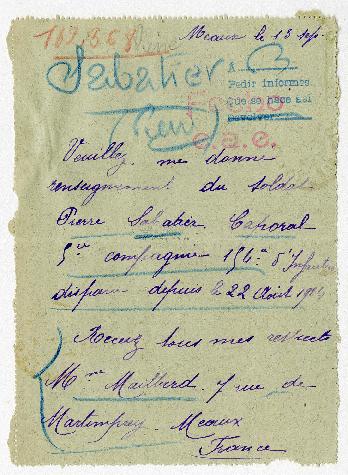 109.368 Rien
Meaux le 13 sept
Sabatier
A
Pedir informes
Que se hace así
devolver
(Rien)
Veuillez me donné
renseignement du soldat
Pierre Sabatier Caporal
5me compagnie 156e d'Infanterie
disparu depuis 22 Août 1914
Recevez tous mes respects
Mme Mailberd. 7 rue de
Martimprey. Meaux
France